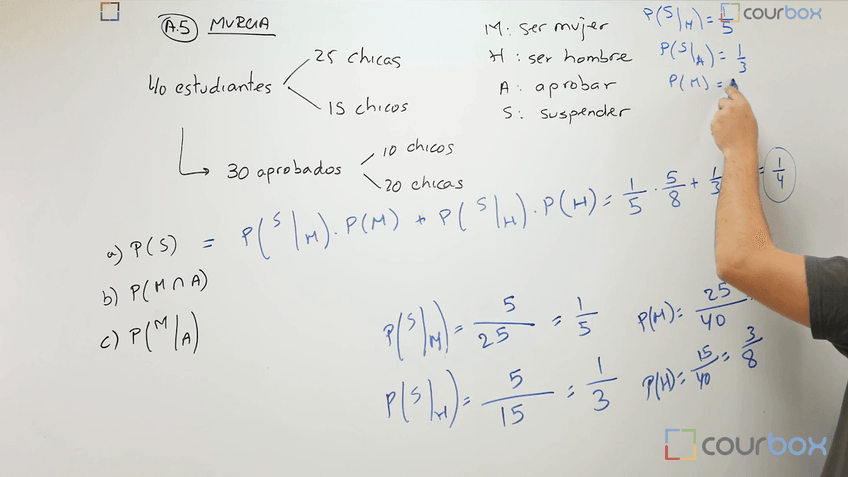 A.5 MURCIA
40 estudiantes
25 chicas
15 chicos
30 aprobados
10 chicos
20 chicas
M: ser mujer
H: ser hombre
A: aprobar
S: suspender
P(S/H) = 1/5
P(S/A) = 1/3
P(M) =
a) P(S) = P(S/M) · P(M) + P(S/H) · P(H) = 1/5 · 5/8 + 1/3 = 1/4
b) P(M ∩ A)
c) P(M/A)
P(S/M) = 5/25 = 1/5
P(M) = 25/40
P(S/H) = 5/15 = 1/3
P(H) = 15/40 = 3/8
courbox
courbox